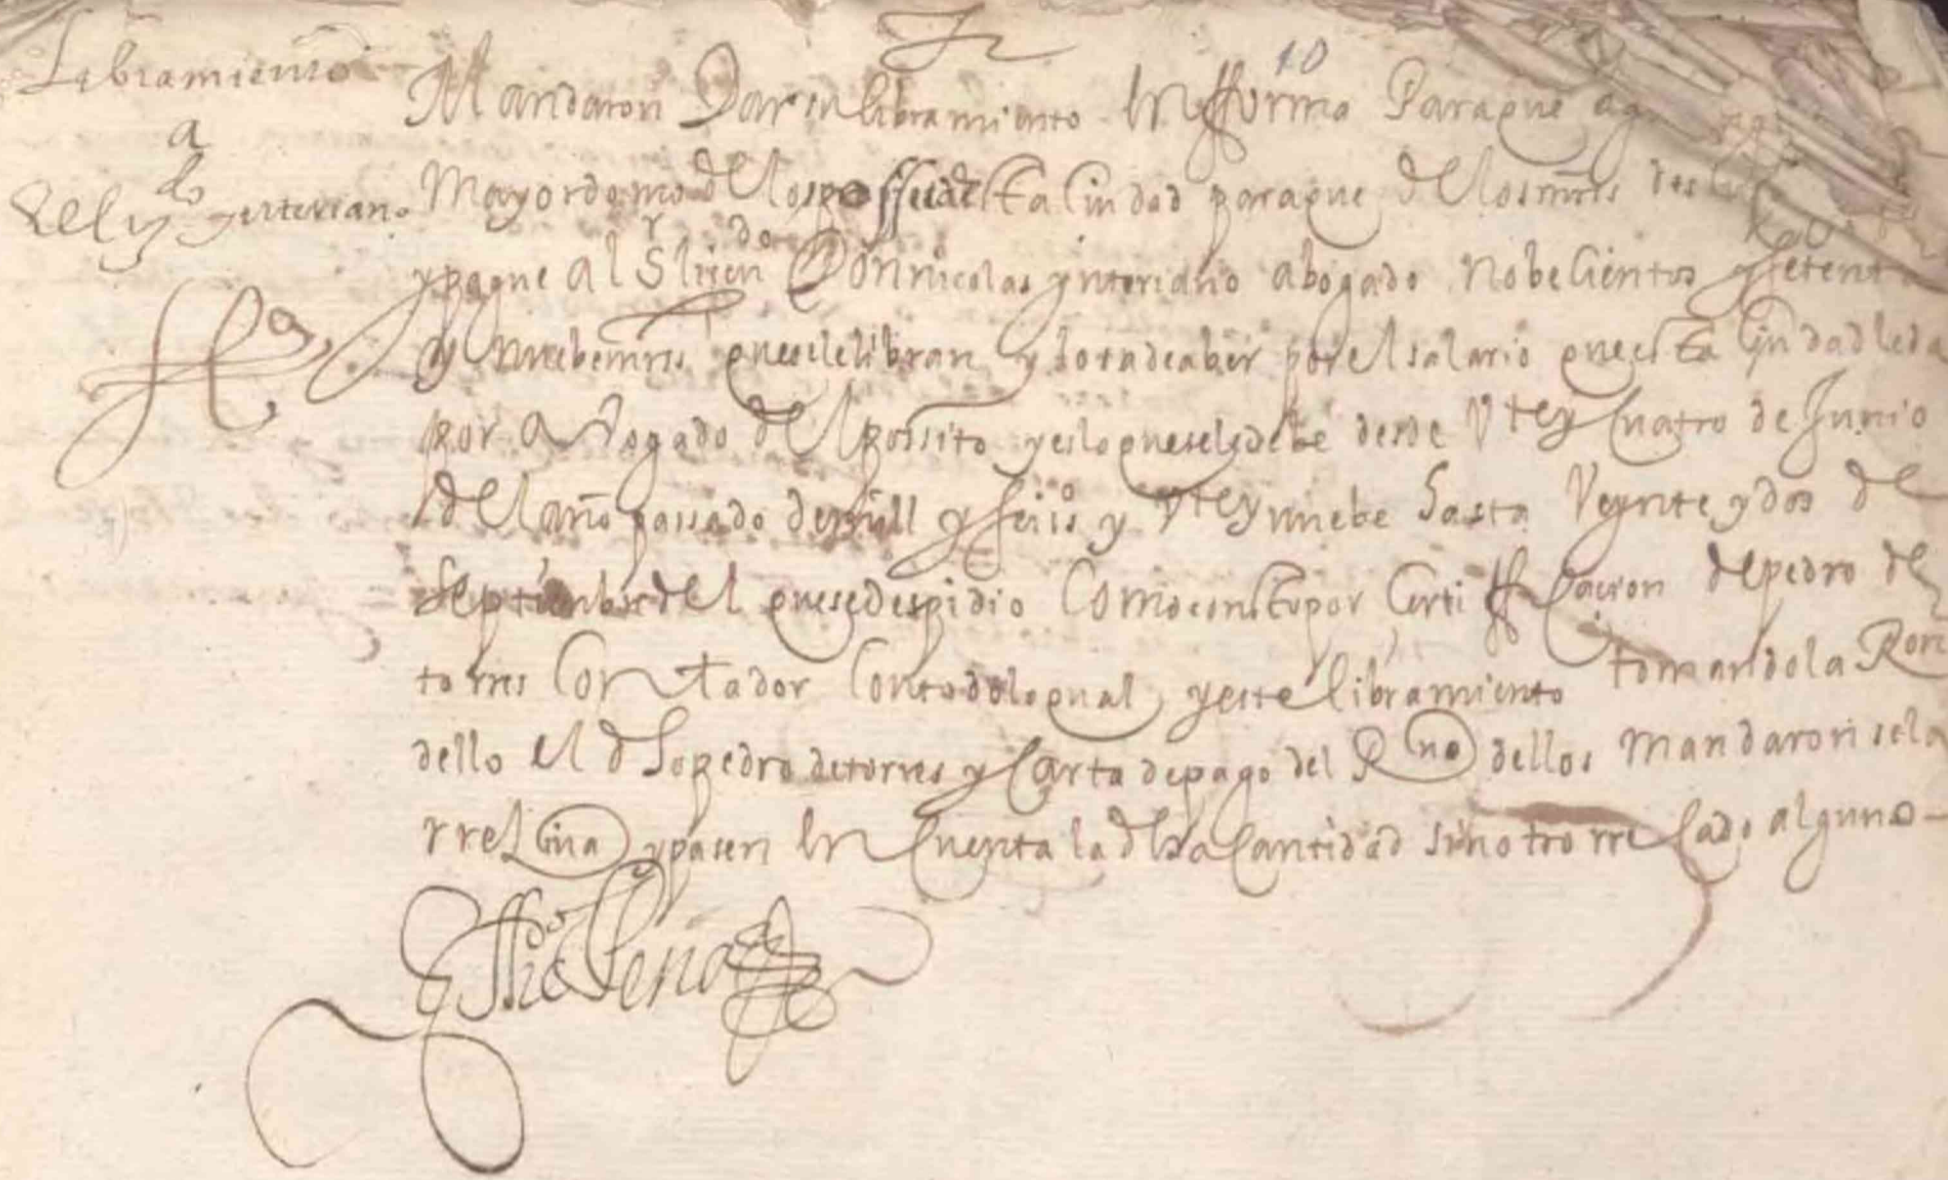 10
Libramiento
a
el lizdo ynteriano
Mandaron Dar su libramiento En fforma Paraque
Mayordomo del los possitos desta Ciudad paraque de los mrs del
y pague al Sr licendo Don nicolas ynteriano abogado Nobecientos y setenta
y nuebe mrs que se le libran y sona de aber por el salario que esta Ciudad le da
por Abogado del possito y es lo que se le debe desde Vte y Cuatro de Junio
del año passado de mill y seisos y Vte y nuebe hasta Veynte y dos de
Septienbre del que se despidio Como consto por Certifficacion de pedro de
torres Contador Con todo lo qual y este libramiento tomando la Ron
dello El dho pedro de torres y Carta de pago del Rno dellos Mandaron se la
rreciua y pasen En Cuenta la dha Cantidad sin otro rrecado alguno